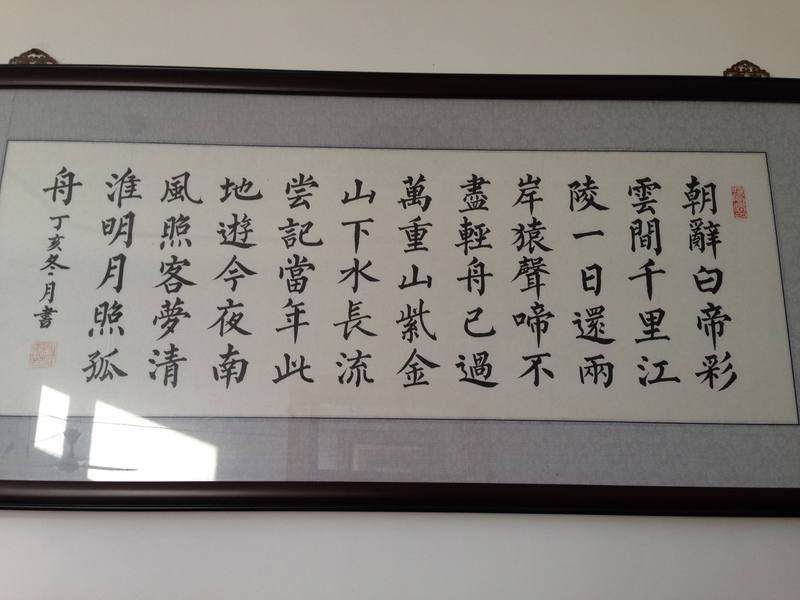 朝辭白帝彩
雲間千里江
陵一日還兩
岸猿聲啼不
盡輕舟已過
萬重山紫金
山下水長流
嘗記當年此
地遊今夜南
風照客夢清
淮明月照孤
舟
丁亥冬月書